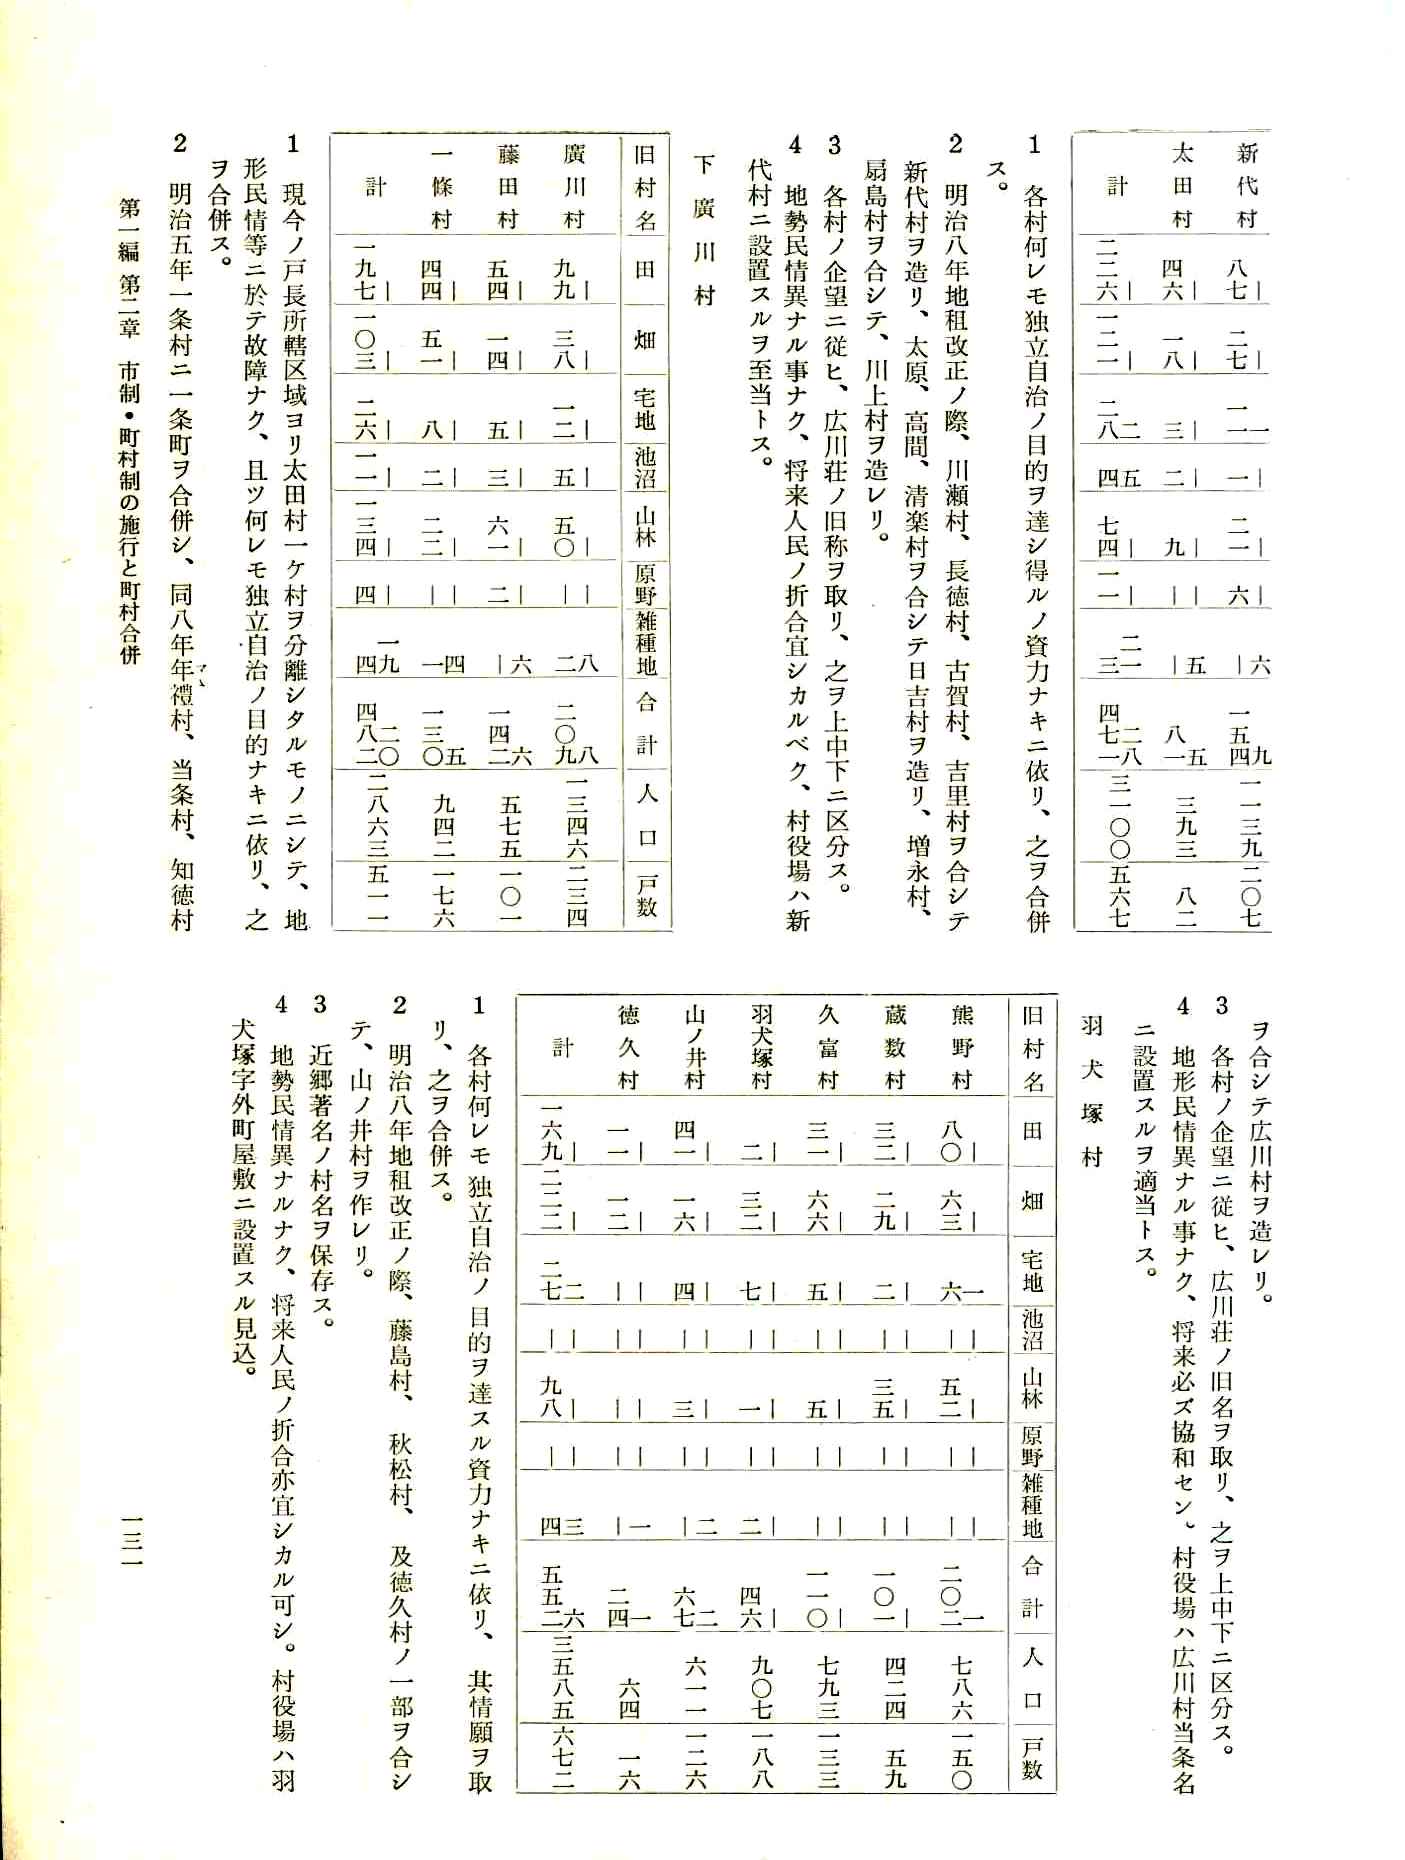 新代村 八七｜ 二七｜ 一一一 一｜ 二一｜ 六｜ ｜六 一五四九 一一三九 二〇七
太田村 四六｜ 一八｜ 三｜ 二｜ 九｜ ｜｜ ｜五 八一五 三九三 八二
計 二二六｜ 一二一｜ 二八二 四五 七四｜ 一一｜ 二三一 四七一二八 三一〇〇 五六七
1　各村何レモ独立自治ノ目的ヲ達シ得ルノ資力ナキニ依リ、之ヲ合併
ス。
2　明治八年地租改正ノ際、川瀬村、長徳村、古賀村、吉里村ヲ合シテ
新代村ヲ造リ、太原、高間、清楽村ヲ合シテ日吉村ヲ造リ、増永村、
扇島村ヲ合シテ、川上村ヲ造レリ。
3　各村ノ企望ニ従ヒ、広川荘ノ旧称ヲ取リ、之ヲ上中下ニ区分ス。
4　地勢民情異ナル事ナク、将来人民ノ折合宜シカルベク、村役場ハ新
代村ニ設置スルヲ至当トス。
下廣川村
旧村名 田 畑 宅地 池沼 山林 原野 雑種地 合計 人口 戸数
廣川村 九九｜ 三八｜ 一二｜ 五｜ 五〇｜ ｜｜ 二八 二〇九八 一三四六 二三四
藤田村 五四｜ 一四｜ 五｜ 三｜ 六一｜ 二｜ ｜六 一四二六 五七五 一〇一
一條村 四四｜ 五一｜ 八｜ 二｜ 二二｜ ｜｜ 一四 一三〇五 九四二 一七六
計 一九七｜ 一〇三｜ 二六｜ 一一｜ 一三四｜ 四｜ 一四九 四八二二〇 二八六三 五一一
1　現今ノ戸長所轄区域ヨリ太田村一ケ村ヲ分離シタルモノニシテ、地
形民情等ニ於テ故障ナク、且ツ何レモ独立自治ノ目的ナキニ依リ、之
ヲ合併ス。
2　明治五年一条村ニ一条町ヲ合併シ、同八年年禮村、当条村、知徳村
ママ
ヲ合シテ広川村ヲ造レリ。
3　各村ノ企望ニ従ヒ、広川荘ノ旧名ヲ取リ、之ヲ上中下ニ区分ス。
4　地形民情異ナル事ナク、将来必ズ協和セン。村役場ハ広川村当条名
ニ設置スルヲ適当トス。
羽犬塚村
旧村名 田 畑 宅地 池沼 山林 原野 雑種地 合計 人口 戸数
熊野村 八〇｜ 六三｜ 六一 ｜｜ 五二｜ ｜｜ ｜｜ 二〇二一 七八六 一五〇
蔵数村 三二｜ 二九｜ 二｜ ｜｜ 三五｜ ｜｜ ｜｜ 一〇一｜ 四二四 五九
久富村 三一｜ 六六｜ 五｜ ｜｜ 五｜ ｜｜ ｜｜ 一一〇｜ 七九三 一三三
羽犬塚村 二｜ 三二｜ 七｜ ｜｜ 一｜ ｜｜ 二｜ 四六｜ 九〇七 一八八
山ノ井村 四一｜ 一六｜ 四｜ ｜｜ 三｜ ｜｜ ｜二 六七二 六一一 一二六
徳久村 一一｜ 一二｜ ｜｜ ｜｜ ｜｜ ｜｜ ｜一 二四一 六四 一六
計 一六九｜ 二二二｜ 二七二 ｜｜ 九八｜ ｜｜ 四三 五五二六 三五八五 六七二
1　各村何レモ独立自治ノ目的ヲ達スル資力ナキニ依リ、其情願ヲ取
リ、之ヲ合併ス。
2　明治八年地租改正ノ際、藤島村、秋松村、及徳久村ノ一部ヲ合シ
テ、山ノ井村ヲ作レリ。
3　近郷著名ノ村名ヲ保存ス。
4　地勢民情異ナルナク、将来人民ノ折合亦宜シカル可シ。村役場ハ羽
犬塚字外町屋敷ニ設置スル見込。
第一編 第二章　市制・町村制の施行と町村合併
一三一